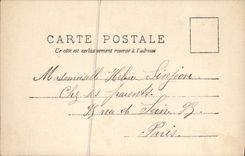 CARTE POSTALE
Ce côté est exclusivement réservé à l'adresse
Mademoiselle Hélène
Chez ses parents
rue de Seine
Paris